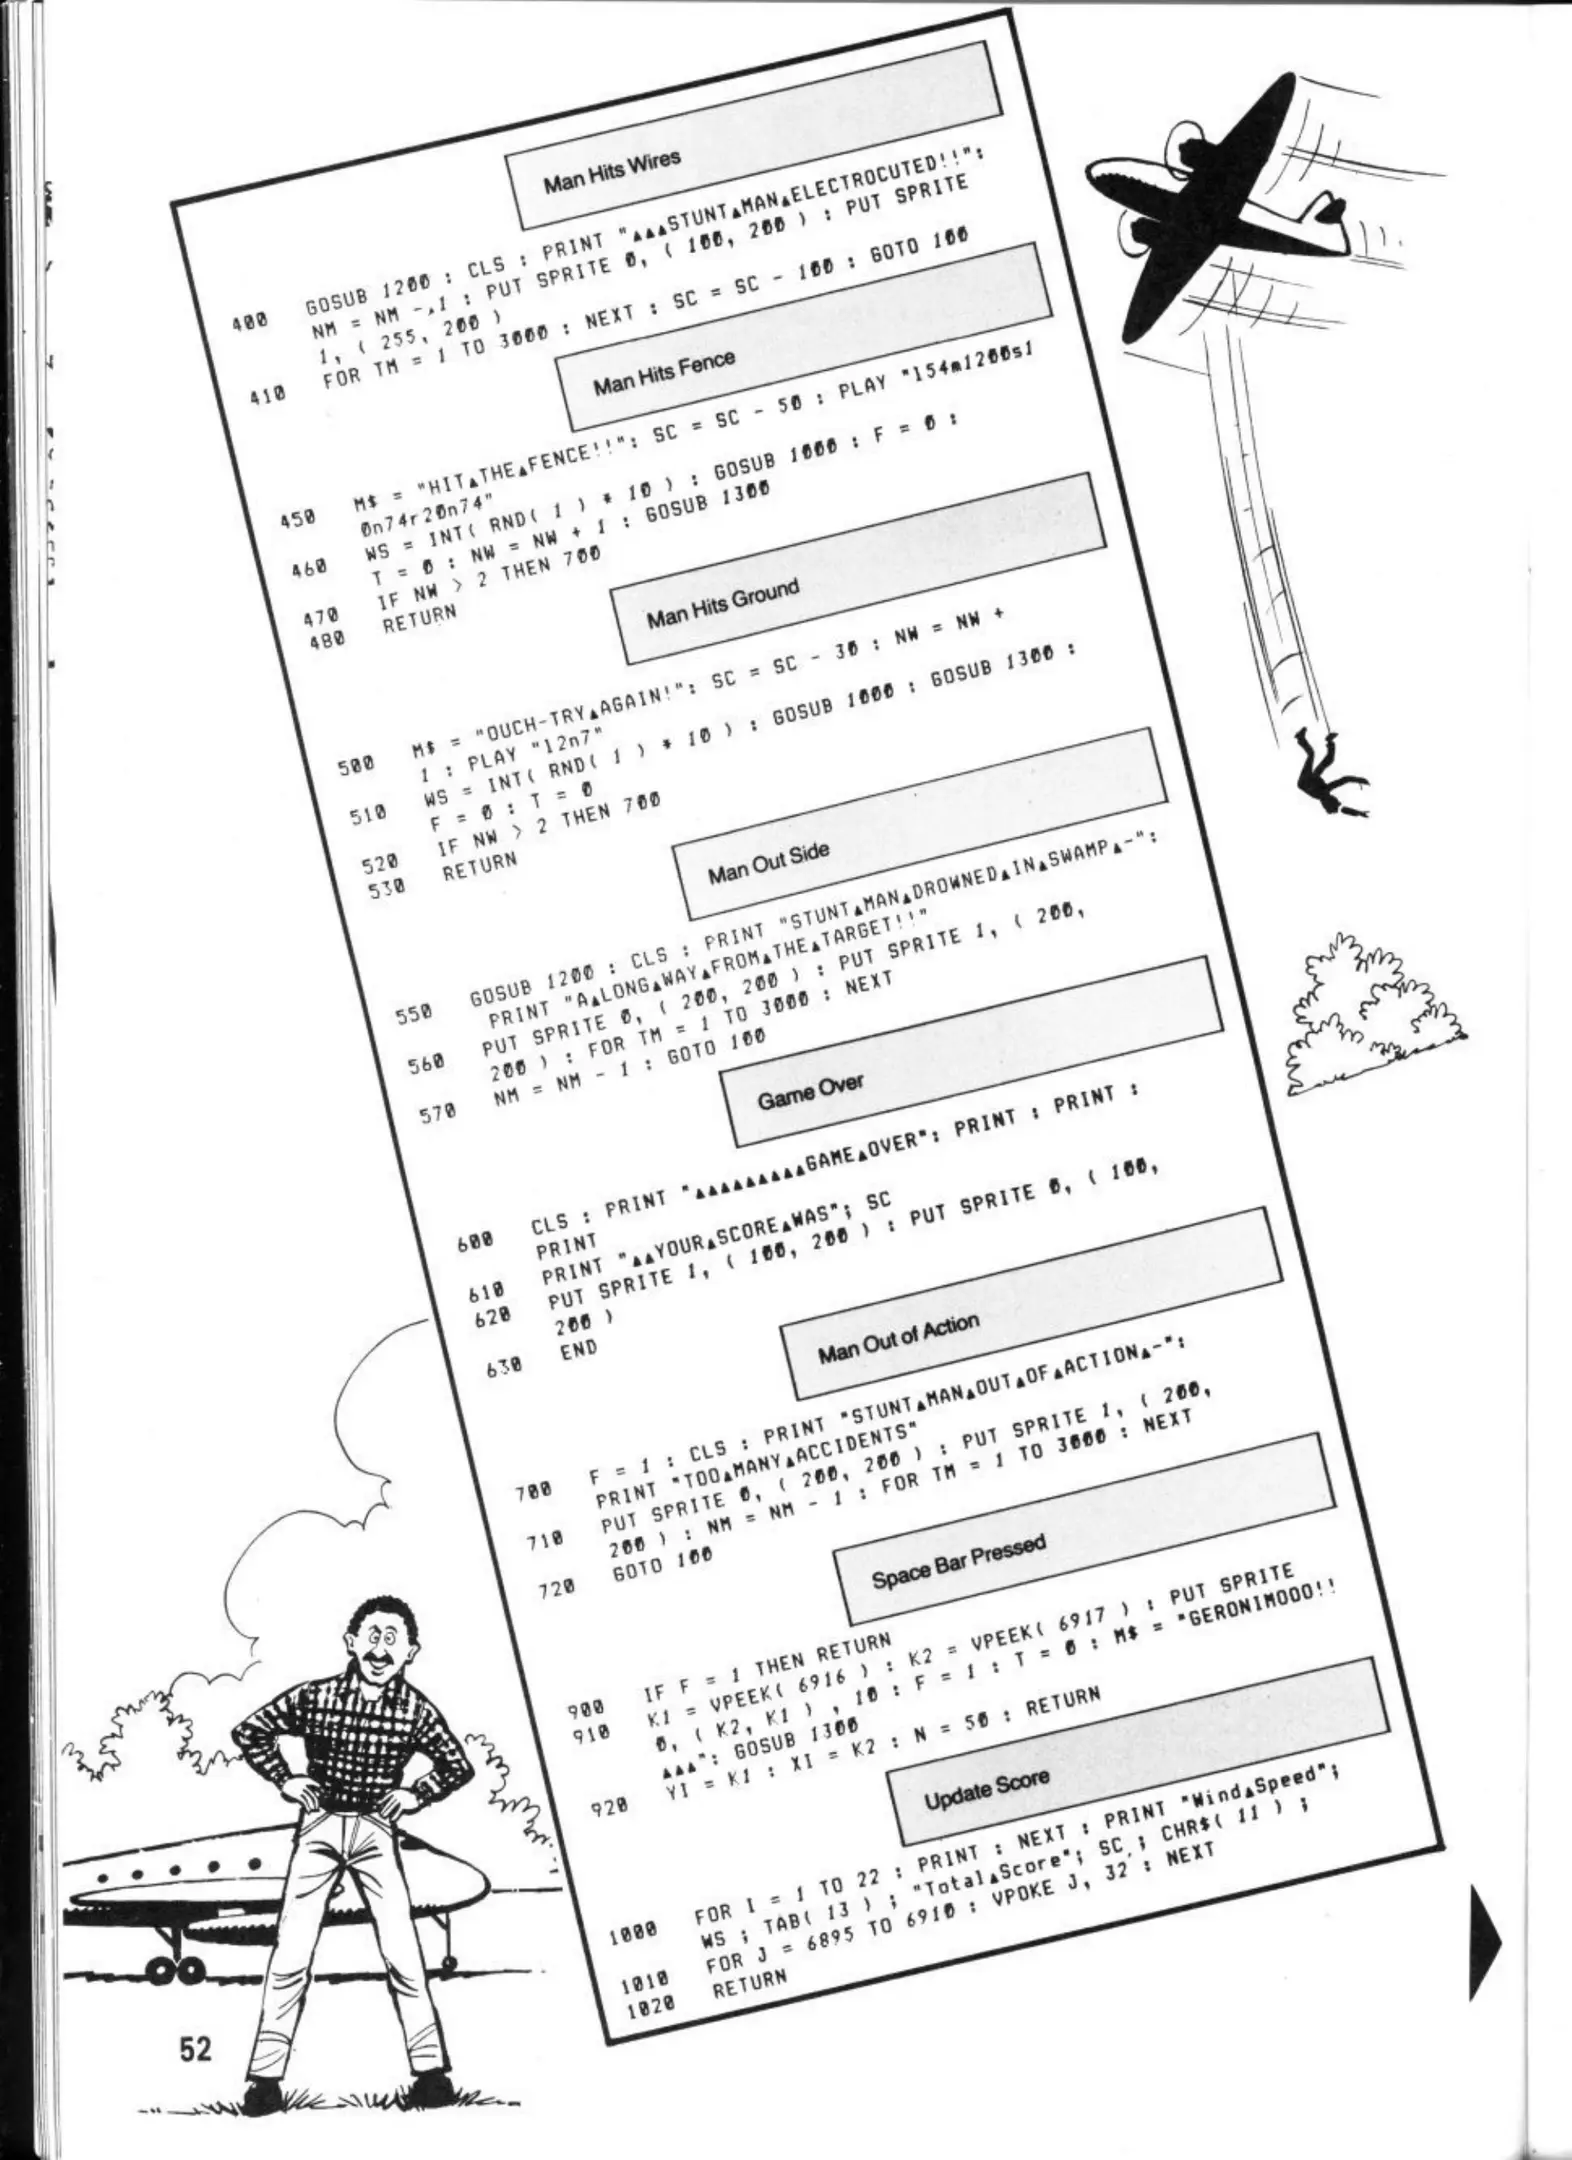 Man Hits Wires
400 GOSUB 1200 : CLS : PRINT "▲▲▲STUNT▲MAN▲ELECTROCUTED!!":
NM = NM -▲1 : PUT SPRITE 0, ( 100, 200 ) : PUT SPRITE
1, ( 255, 200 )
410 FOR TM = 1 TO 3000 : NEXT : SC = SC - 100 : GOTO 100
Man Hits Fence
450 M$ = "HIT▲THE▲FENCE!!": SC = SC - 50 : PLAY "l54m1200s1
0n74r20n74"
460 WS = INT( RND( 1 ) * 10 ) : GOSUB 1000 : F = 0 :
T = 0 : NW = NW + 1 : GOSUB 1300
470 IF NW > 2 THEN 700
480 RETURN
Man Hits Ground
500 M$ = "OUCH-TRY▲AGAIN!": SC = SC - 30 : NW = NW +
1 : PLAY "l2n7"
510 WS = INT( RND( 1 ) * 10 ) : GOSUB 1000 : GOSUB 1300 :
F = 0 : T = 0
520 IF NW > 2 THEN 700
530 RETURN
Man Out Side
550 GOSUB 1200 : CLS : PRINT "STUNT▲MAN▲DROWNED▲IN▲SWAMP▲-":
PRINT "A▲LONG▲WAY▲FROM▲THE▲TARGET!!"
560 PUT SPRITE 0, ( 200, 200 ) : PUT SPRITE 1, ( 200,
200 ) : FOR TM = 1 TO 3000 : NEXT
570 NM = NM - 1 : GOTO 100
Game Over
600 CLS : PRINT "▲▲▲▲▲▲▲▲▲GAME▲OVER": PRINT : PRINT :
PRINT
610 PRINT "▲▲YOUR▲SCORE▲WAS"; SC
620 PUT SPRITE 1, ( 100, 200 ) : PUT SPRITE 0, ( 100,
200 )
630 END
Man Out of Action
700 F = 1 : CLS : PRINT "STUNT▲MAN▲OUT▲OF▲ACTION▲-":
PRINT "TOO▲MANY▲ACCIDENTS"
710 PUT SPRITE 0, ( 200, 200 ) : PUT SPRITE 1, ( 200,
200 ) : NM = NM - 1 : FOR TM = 1 TO 3000 : NEXT
720 GOTO 100
Space Bar Pressed
900 IF F = 1 THEN RETURN
910 K1 = VPEEK( 6916 ) : K2 = VPEEK( 6917 ) : PUT SPRITE
0, ( K2, K1 ) , 10 : F = 1 : T = 0 : M$ = "GERONIMOOO!!
▲▲▲": GOSUB 1300
920 YI = K1 : XI = K2 : N = 50 : RETURN
Update Score
1000 FOR I = 1 TO 22 : PRINT : NEXT : PRINT "Wind▲Speed";
WS ; TAB( 13 ) ; "Total▲Score"; SC ; CHR$( 11 ) ;
1010 FOR J = 6895 TO 6910 : VPOKE J, 32 : NEXT
1020 RETURN
52